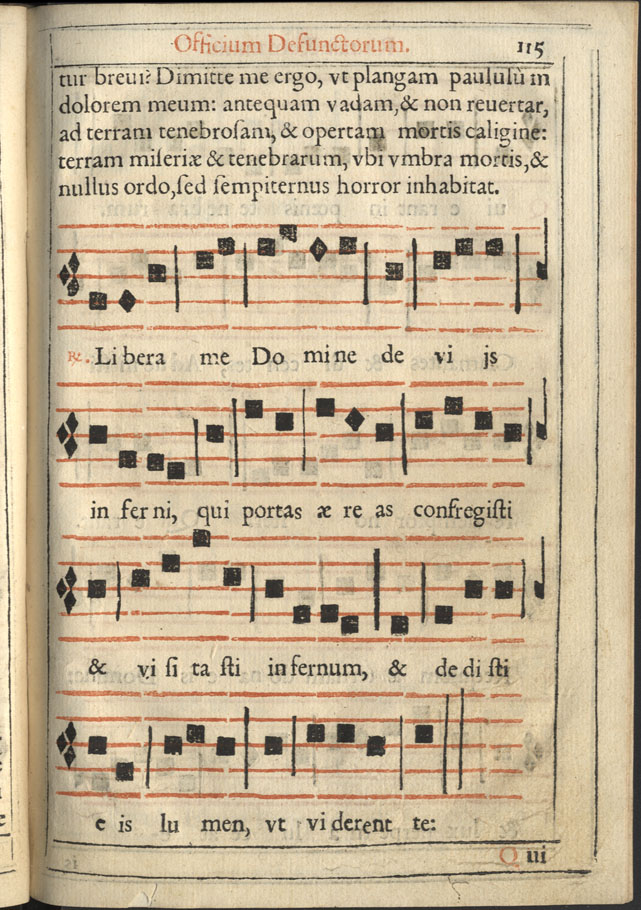 Officium Defunctorum. 115
tur breui? Dimitte me ergo, vt plangam paululũ in
dolorem meum: antequam vadam, & non reuertar,
ad terram tenebroſam, & opertam mortis caligine:
terram miſeriæ & tenebrarum, vbi vmbra mortis, &
nullus ordo, ſed ſempiternus horror inhabitat.
℟. Li bera me Do mi ne de vi js
in fer ni, qui portas æ re as confregiſti
& vi ſi ta ſti in fernum, & de di ſti
e is lu men, vt vi derent te:
Qui